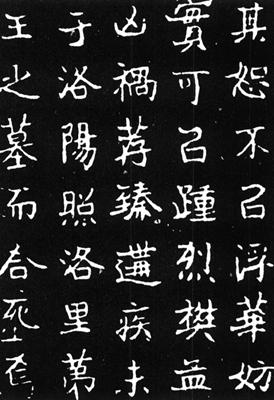 其恕不已浮華妨
實可已踵烈樊益
凶禍荐臻遘疾未
于洛陽照洛里萬
王之墓而合